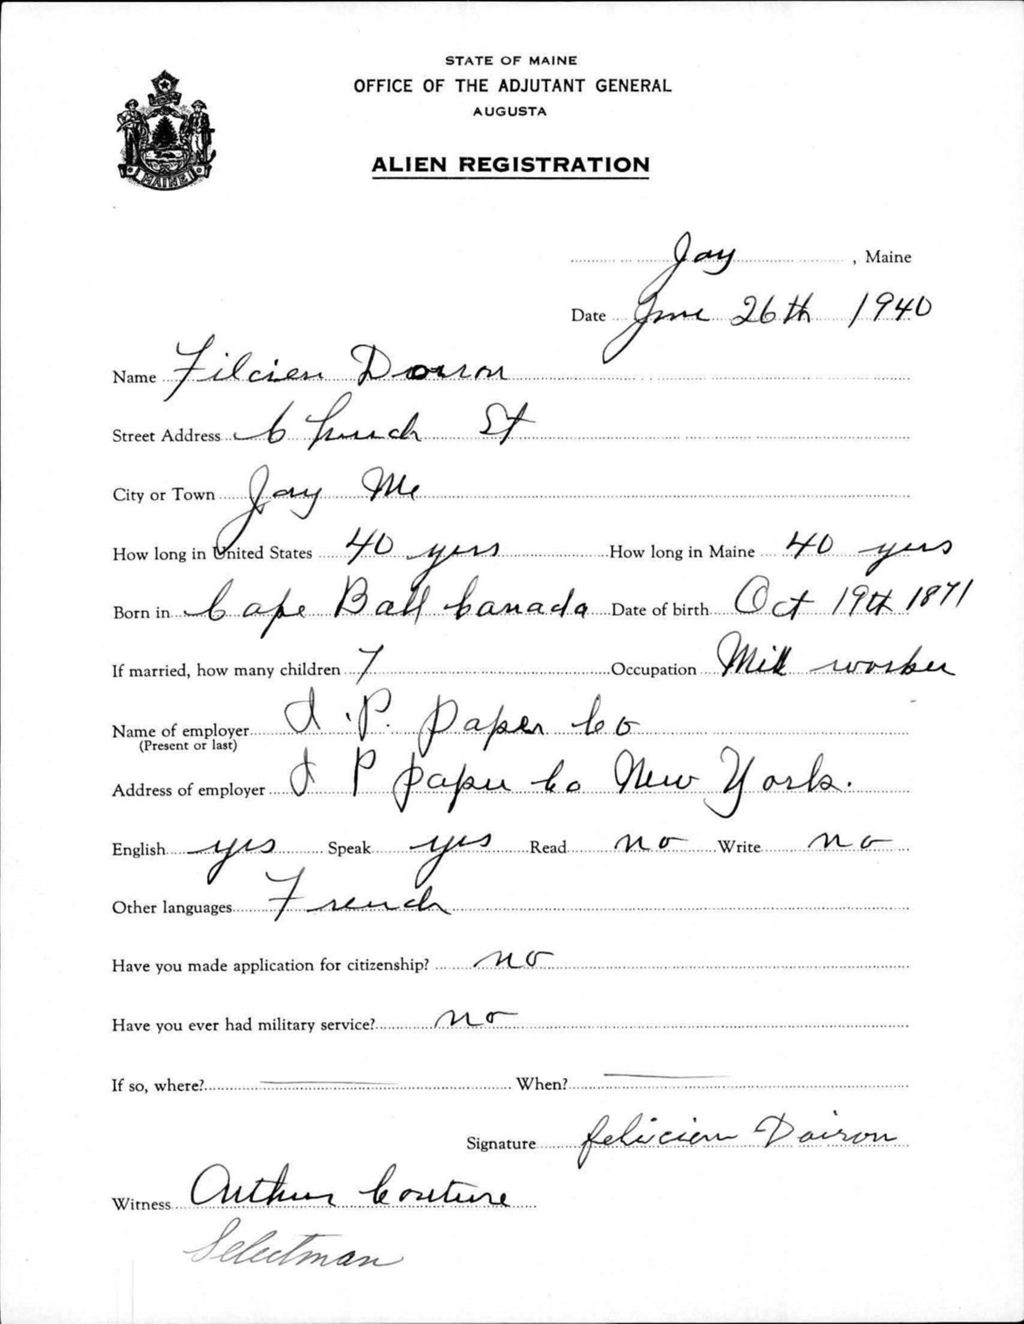 STATE OF MAINE
OFFICE OF THE ADJUTANT GENERAL
AUGUSTA
ALIEN REGISTRATION
MAINE
Jay, Maine
Date June 26th 1940
Name Filcien Doiron
Street Address Church St
City or Town Jay Me
How long in United States 40 yers How long in Maine 40 yers
Born in Cape Ball Canada Date of birth Oct 19th 1871
If married, how many children 7 Occupation Mill worker
Name of employer I.P. Paper Co
(Present or last)
Address of employer I P Paper Co New York.
English yes Speak yes Read no Write no
Other languages French
Have you made application for citizenship? no
Have you ever had military service? no
If so, where? When?
Signature Felicien Doiron
Witness Arthur Couture
Selectman